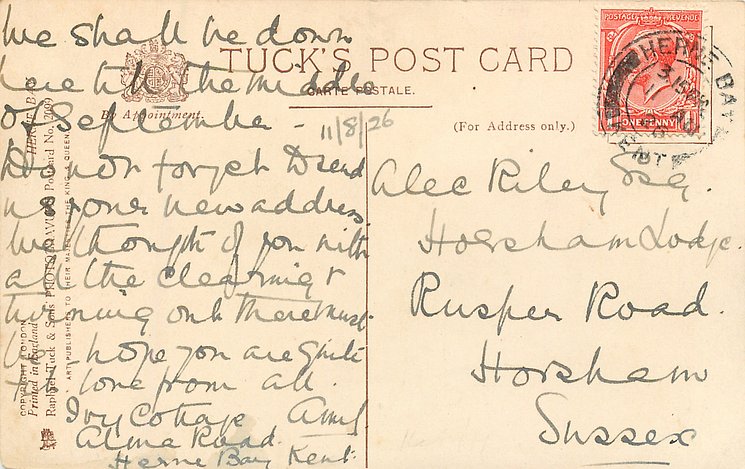 We shall be down
here till the middle
of September -
Do not forget to send
us your new address.
We thought of you with
all the clearing &
turning out there must
be - hope you are quite
love from all.
Ivy Cottage
Alma Road
Herne Bay Kent
TUCK'S POST CARD
CARTE POSTALE.
By Appointment.
(For Address only.)
11/8/26
HERNE BAY
Raphael Tuck & Sons PHOTOGRAVURE Postcard No. 2099
ART PUBLISHERS TO THEIR MAJESTIES THE KING & QUEEN
COPYRIGHT LONDON
Printed in England
POSTAGE REVENUE
ONE PENNY
HERNE BAY
KENT
Alec Riley Esq.
Horsham Lodge.
Rusper Road.
Horsham
Sussex